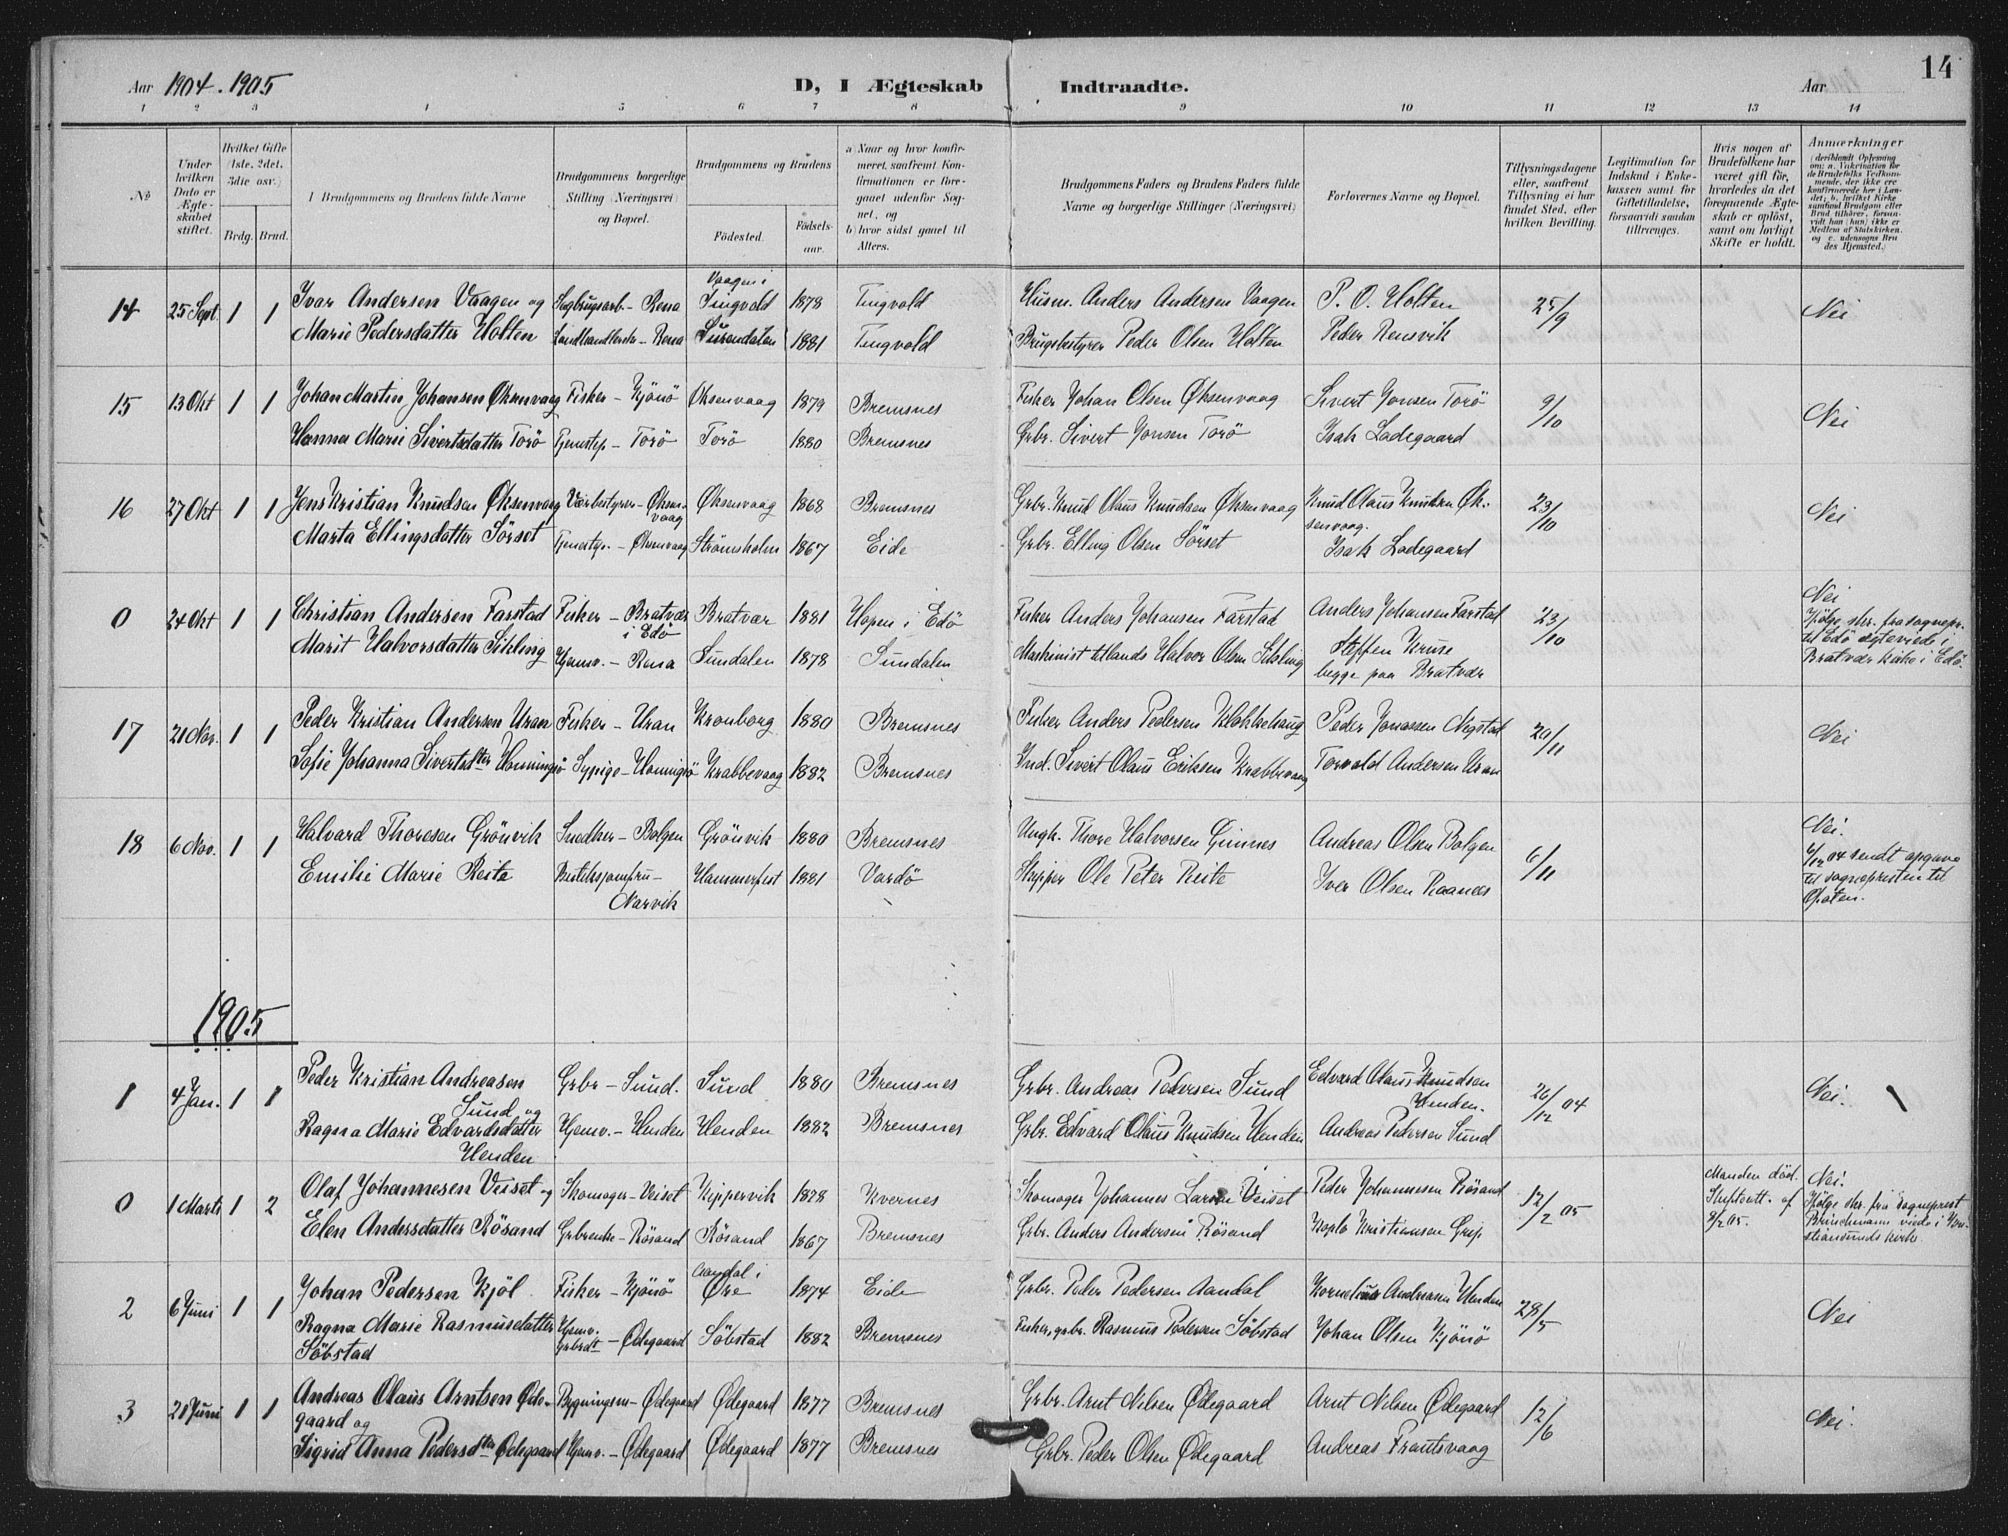 Aar 1904-1905 D, I Ægteskab Indtraadte. Aar 14
1 2 3 4 5 6 7 8 9 10 11 12 13 14
No
Under hvilken Dato er Ægteskabet stiftet.
Hvilket Gifte (1ste, 2det, 3die osv.)
Brdg. Brud.
Brudgommens og Brudens fulde Navne
Brudgommens borgerlige Stilling (Næringsvei) og Bopæl.
Brudgommens og Brudens
Födested. Födselsaar.
a) Naar og hvor konfirmeret, saafremt Konfirmationen er foregaaet udenfor Sognet, og
b) hvor sidst gaaet til Alters.
Brudgommens Faders og Brudens Faders fulde Navne og borgerlige Stillinger (Næringsvei)
Forlovernes Navne og Bopæl.
Tillysningsdagene eller, saafremt Tillysning ei har fundet Sted, efter hvilken Bevilling.
Legitimation for Indskud i Enkekassen samt for Giftetilladelse, forsaavidt saadan tiltrænges.
Hvis nogen af Brudefolkene har været gift för, hvorledes da det foregaaende Ægteskab er oplöst, samt om lovligt Skifte er holdt.
Anmærkninger
14 25 Sept. 1 1 Ivar Andersen Vaagen og Sagbrugsarb - Rena Vaagen i Tingvold 1878 Tingvold Husm. Anders Andersen Vaagen P. O. Holten 25/9 Nei
Marie Pedersdatter Holten Landhandlerske - Rena Surendalen 1881 Tingvold Brugsbestyrer Peder Olsen Holten Peder Rensvik
15 13 Okt 1 1 Johan Martin Johansen Øksenvaag Fisker - Kjönö Øksenvaag 1879 Bremsnes Fisker Johan Olsen Øksenvaag Sivert Jonsen Torö 9/10 Nei
Hanna Marie Sivertsdatter Torö Tjenestep - Torö Torö 1880 Bremsnes Grbr. Sivert Jonsen Torö Isak Ladegaard
16 27 Okt 1 1 Jens Kristian Knudsen Øksenvaag Værbestyrer - Øksenvaag Øksenvaag 1868 Bremsnes Grbr. Knud Olaus Knudsen Øksenvaag Knud Olaus Knudsen Øksenvaag. 23/10 Nei
Marta Ellingsdatter Sörset Tjenestep. - Øksenvaag Strömsholm 1867 Eide Grbr. Elling Olsen Sörset Isak Ladegaard
0 24 Okt 1 1 Christian Andersen Farstad Fisker - Bratvær i Edö Bratvær 1881 Hopen i Edö Fisker Anders Johansen Farstad Anders Johansen Farstad 23/10 Nei
Marit Halvorsdatter Sikling Hjemv. - Rena Sundalen 1878 Sundalen Maskinist tillands Halvor Olsen Sikling Steffen Kruse
begge paa Bratvær
Ifölge skr. fra sognepr. til Edö ægteviede i Bratvær kirke i Edö.
17 21 Nov. 1 1 Peder Kristian Andersen Uran Fisker - Uran Kronborg 1880 Bremsnes Fisker Anders Pedersen Klokkehaug Peder Jonassen Negstad 20/11 Nei
Sofie Johanna Sivertsdtter Honningsö Sypige - Honningsö Krabbevaag 1882 Bremsnes Ind. Sivert Olaus Eriksen Krabbevaag Torvald Andersen Uran
18 6 Nov. 1 1 Halvard Thoresen Grönvik Snedker - Bolgen Grönvik 1880 Bremsnes Ungk. Thore Halvorsen Gimnes Andreas Olsen Bolgen 6/11 Nei.
Emilie Marie Reite - Narvik Hammerfest 1881 Vardö Skipper Ole Peter Reite Iver Olsen Raanes
04 sendt opgave til sognepresten til Ofoten.
1905
1 4 Jan. 1 1 Peder Kristian Andreasen Sund og Grbr - Sund. Sund 1880 Bremsnes Grbr. Andreas Pedersen Sund Edvard Olaus Knudsen Henden. 26/12 04 Nei.
Ragna Marie Edvardsdatter Henden Hjemv. - Henden Henden 1882 Bremsnes Grbr. Edvard Olaus Knudsen Henden Andreas Pedersen Sund
0 1 Marts 1 2 Olaf Johannesen Veiset og Skomager - Veiset Kippervik 1878 Kvernes Skomager Johannes Larsen Veiset Peder Johannesen Rösand 12/2 05 Manden död. Skifteatt. af 8/2 05. Nei.
Elen Andersdatter Rösand Grbrenke - Rösand Rösand 1867 Bremsnes Grbr. Anders Andersen Rösand Kristiansen Grip
Ifölge skr. fra sogneprest Brinchmann viede i Kristiansunds kirke.
2 6 Juni 1 1 Johan Pedersen Kjöl Fisker - Kjönö Aandal i Øre 1874 Eide Grbr. Peder Pedersen Aandal Kornelius Andreasen Henden 28/5 Nei
Ragna Marie Rasmusdatter Söbstad Hjemv. Grbrdt - Ødegaard Söbstad 1882 Bremsnes Fisker, grbr. Rasmus Pedersen Söbstad Johan Olsen Kjönö
3 21 Juni 1 1 Andreas Olaus Arntsen Ødegaard og Bygningsm - Ødegaard Ødegaard 1877 Bremsnes Grbr. Arnt Nilsen Ødegaard Arnt Nilsen Ødegaard 12/6 Nei.
Sigrid Anna Pedersdtr Ødegaard Hjemv. - Ødegaard Ødegaard 1877 Bremsnes Grbr. Peder Olsen Ødegaard Andreas Frantsvaag